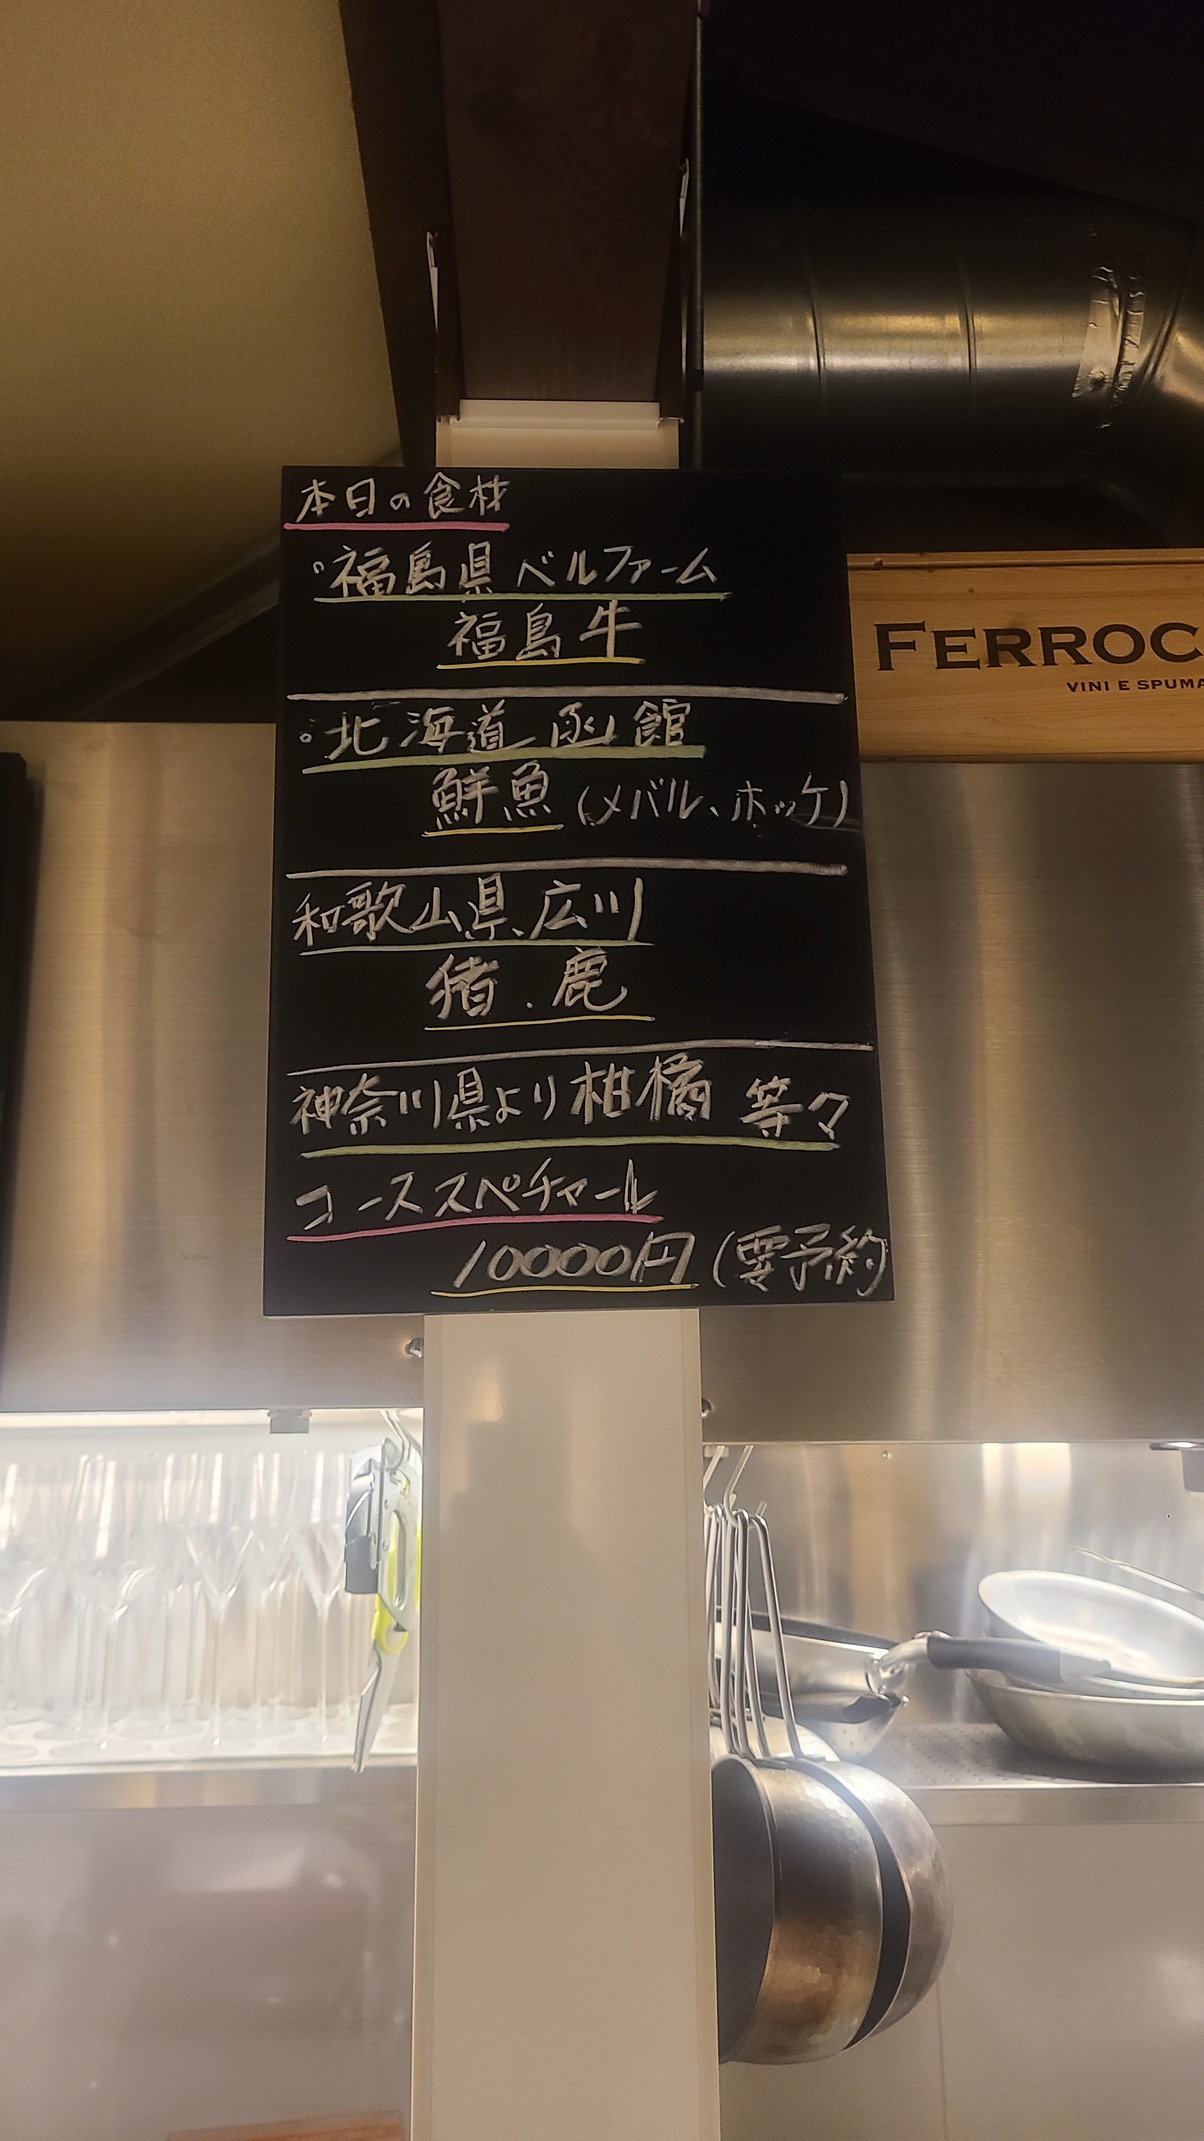 本日の食材
・福島県 ベルファーム
福島牛
・北海道 函館
鮮魚 (メバル、ホッケ)
和歌山県、広川
猪.鹿
神奈川県より柑橘 等々
コーススペチャール
10000円 (要予約
FERROC
VINI E SPUMA